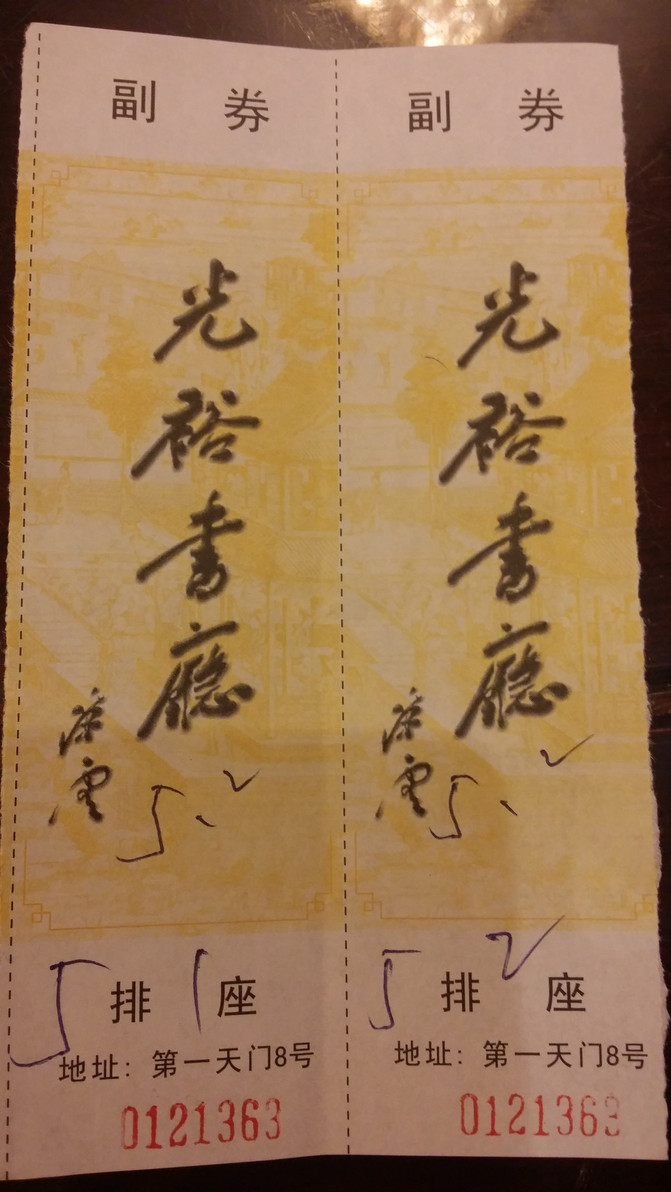 副 券
光裕書廳
陈雲
5.2
5排1座
地址：第一天门8号
0121363
副 券
光裕書廳
陈雲
5.2
5排2座
地址：第一天门8号
0121363